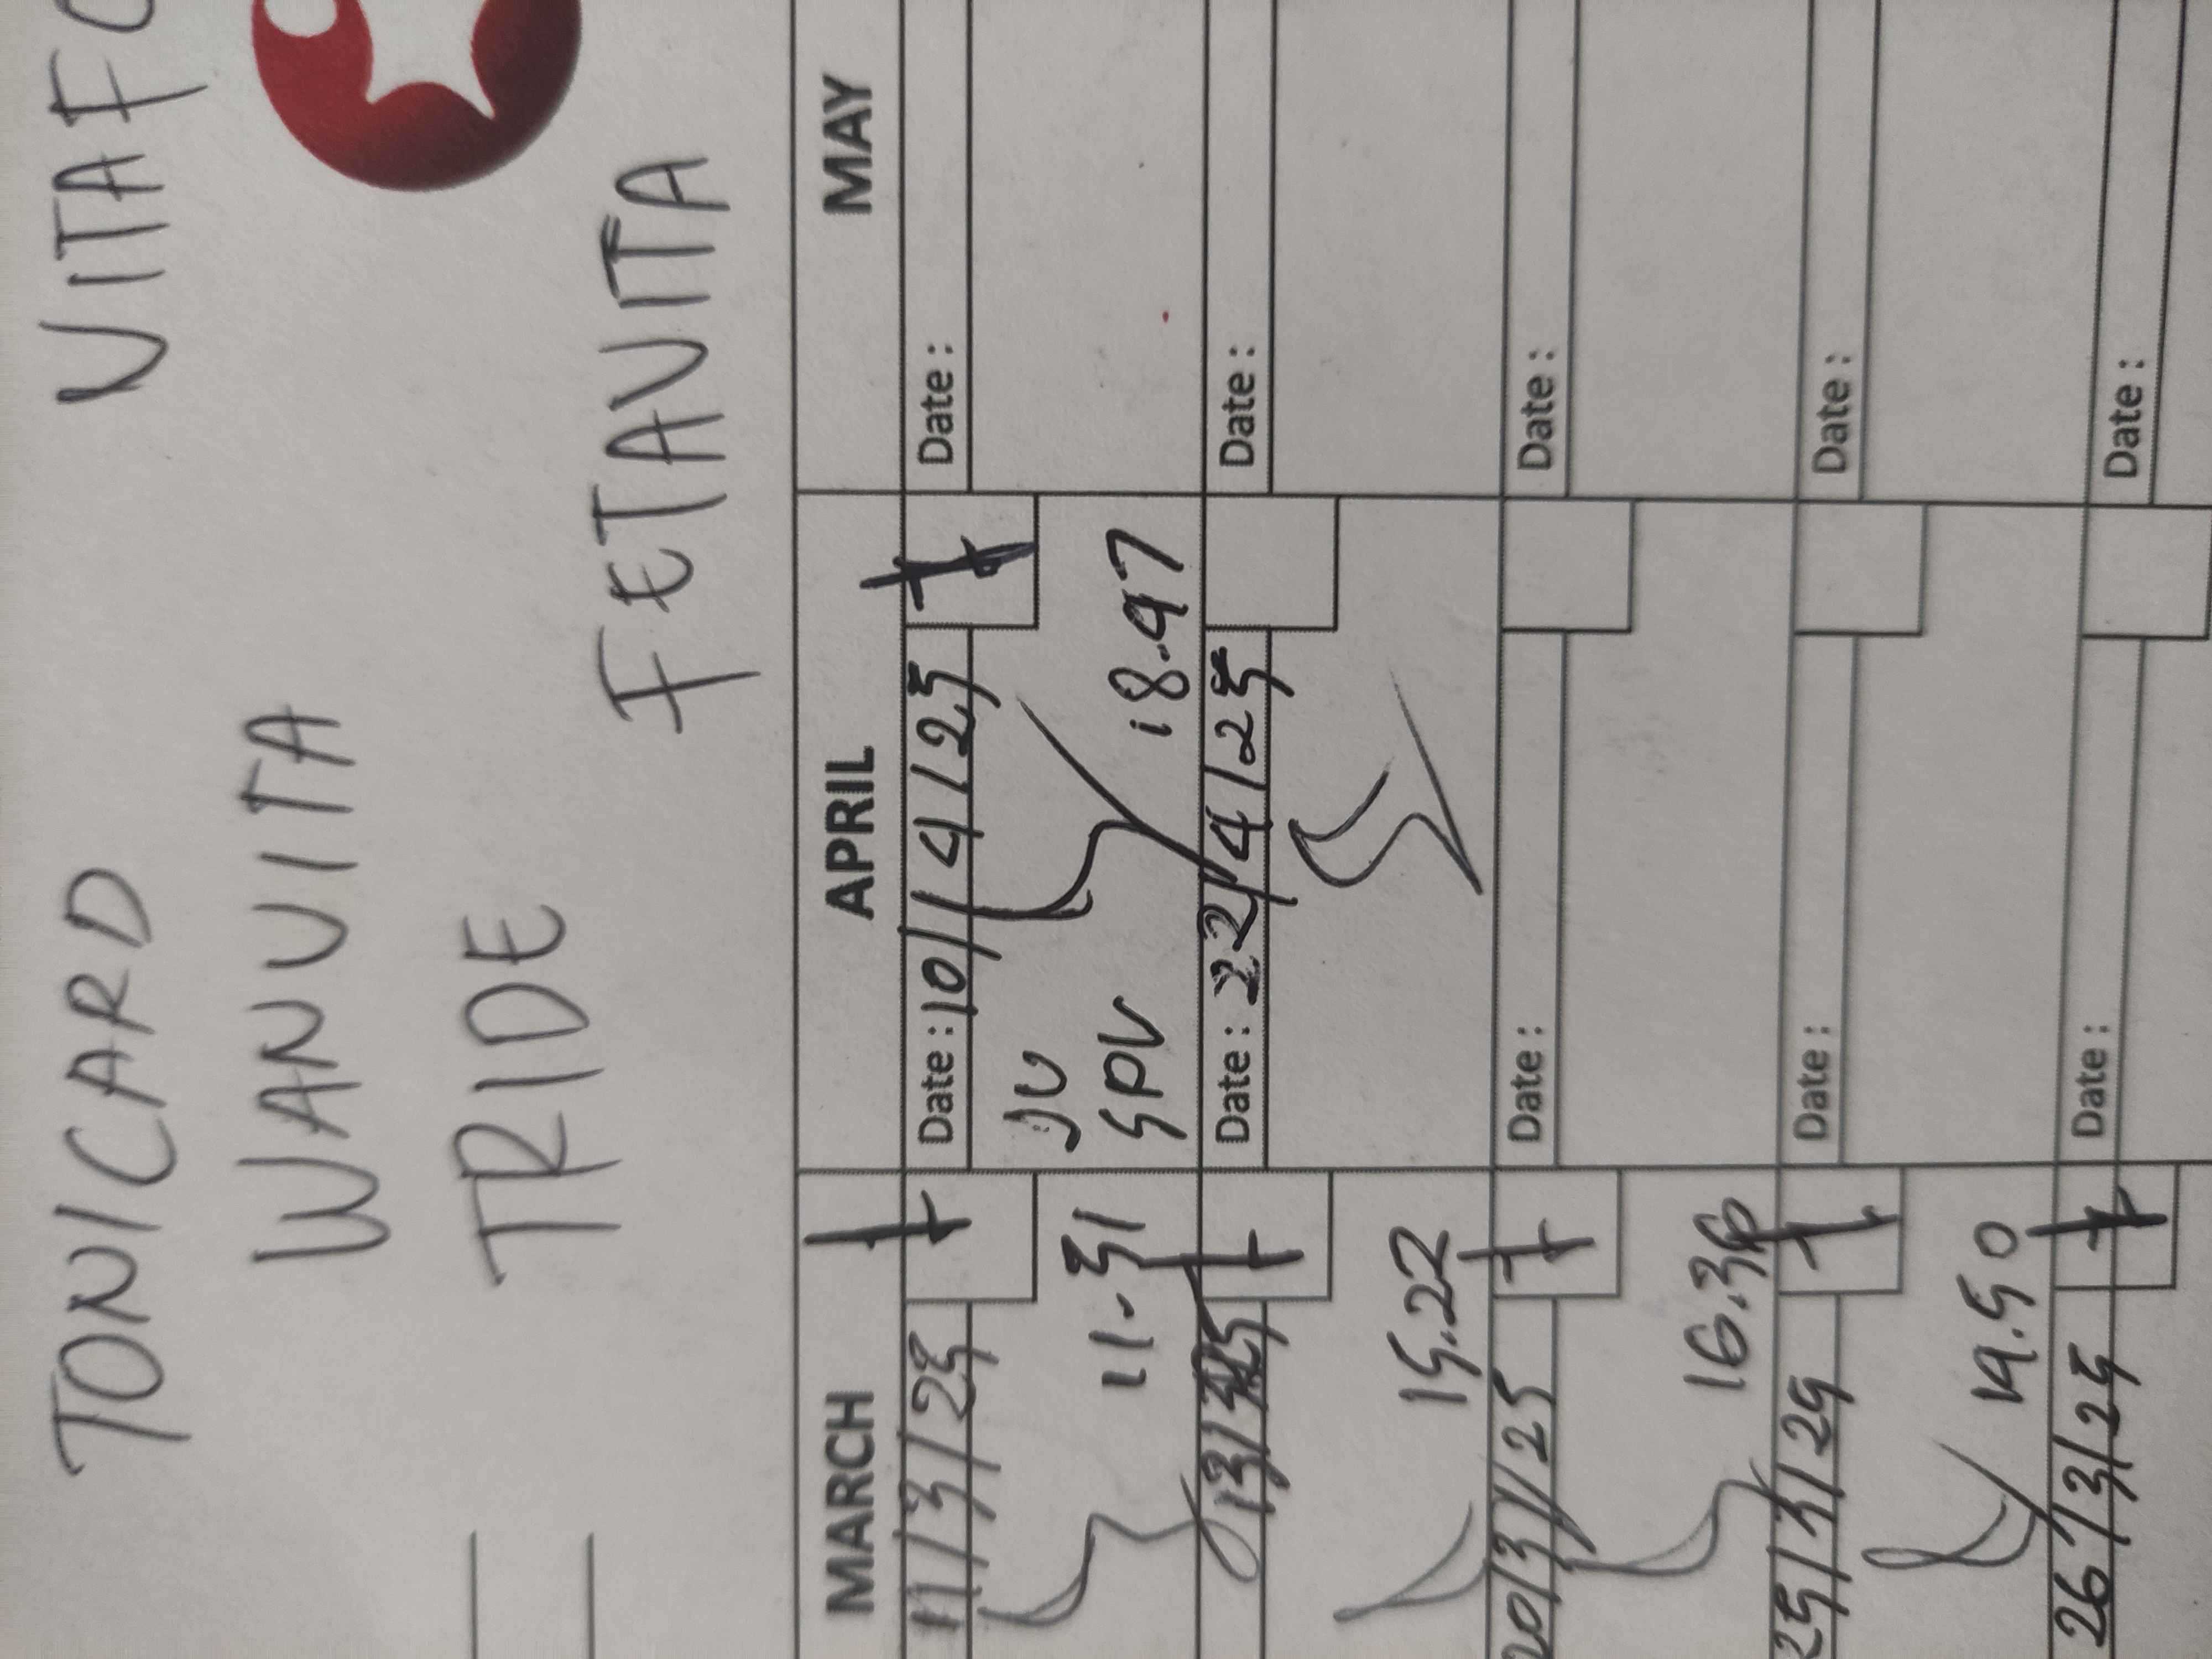 TONICARD VITAFO
WANVITA
TRIDE
FETAVITA
MARCH APRIL MAY
11/3/25 Date: 10/4/25 Date:
JU
11.31 SPV 18.47
13/3/25 Date: 22/4/25 Date:
15.22
20/3/25 Date: Date:
16.36
25/3/25 Date: Date:
19.50
26/3/25 Date: Date: